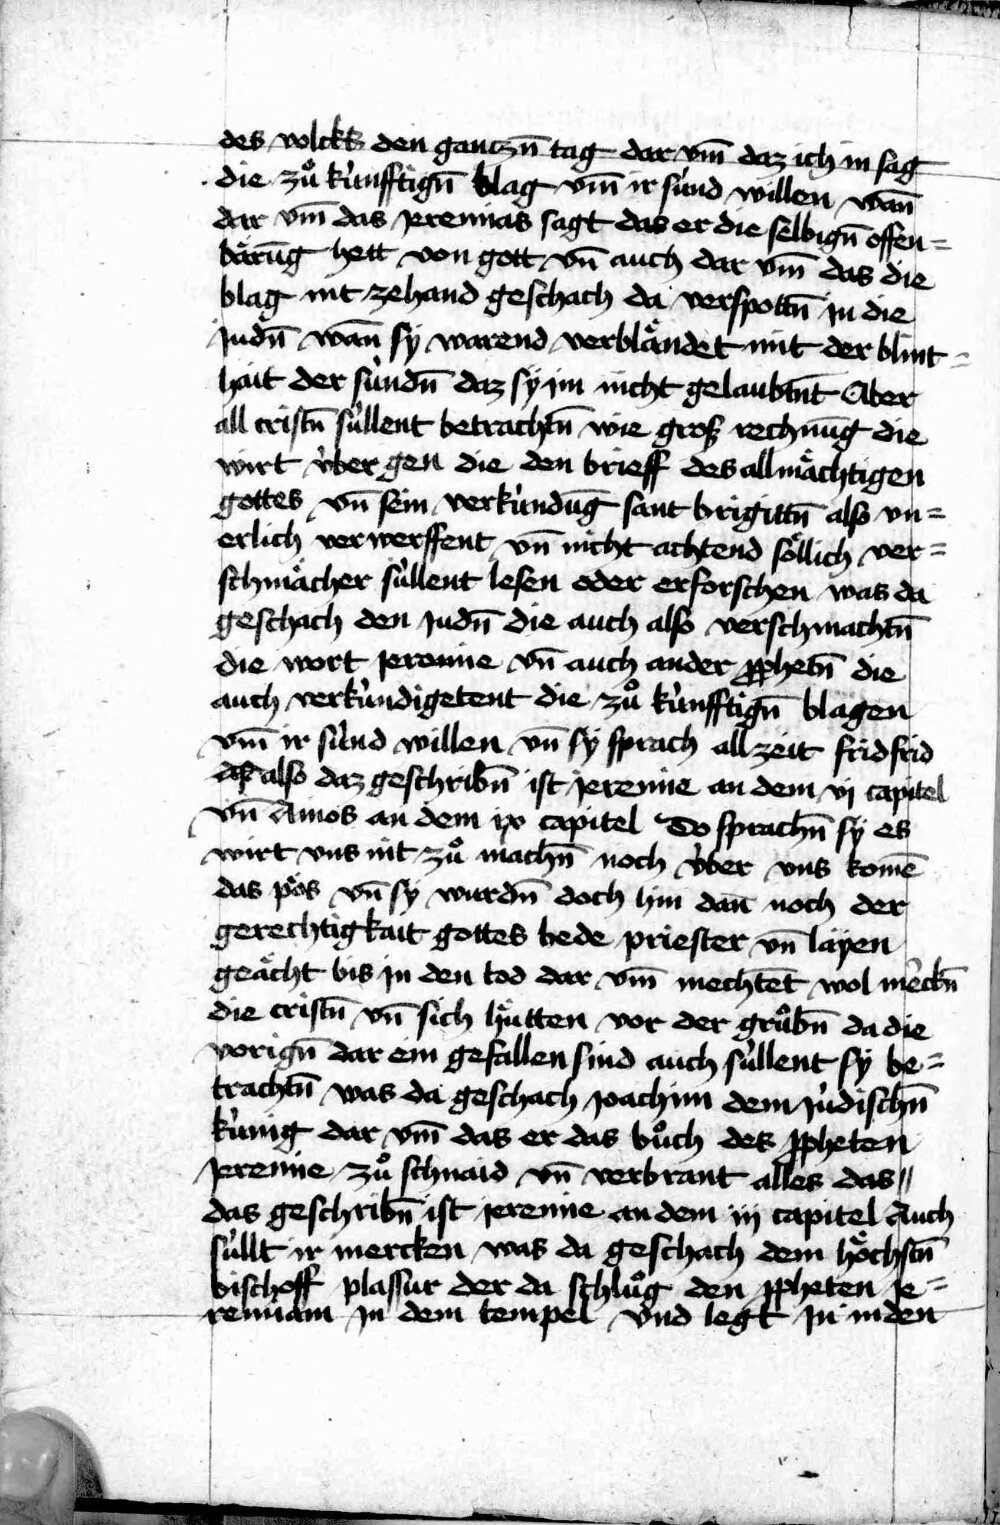 des volcks den gantzn̄ tag dar vm̄ daz ich in sag
die zů kúnfftign̄ blag vm̄ ir súnd willen wan̄
dar vm̄ das Jeremias sagt das er die selbign̄ offen=
bärūg hett von gott vn̄ auch dar vm̄ das die
blag nit zehand geschach da verspottn̄ in die
Judn̄ wan̄ sy warend verbländet mit der blint=
hait der súndn̄ daz sy im nicht gelaubtn̄t Aber
all cristn̄ súllent betrachtn̄ wie groß rechnūg die
wirt v́ber gen die den brieff des allmächtigen
gottes vn̄ sein verkúndūg sant brigittn̄ also vn=
erlich verwerffent vn̄ nicht achtend söllich ver=
schmächer súllent lesen oder erforschen was da
geschach den Judn̄ die auch also verschmachtn̄
die wort Jeremie vn̄ auch ander ꝓphetn̄ die
auch verkúndigetent die zů kúnfftign̄ blagen
vm̄ ir súnd willen vn̄ sy sprach all zeit frid frid
also daz geschribn̄ ist Jeremie an dem vj capitel
vn̄ Amos an dem ix capitel Do sprachn̄ sy es
wirt vns nit zů nachn̄ noch v́ber vns komē
das pös vn̄ sy wurdn̄ doch hin dan̄ noch der
gerechtigkait gottes bede priester vn̄ layen
geächt bis in den tod dar vm̄ mechtet wol merckn̄
die cristn̄ vn̄ sich hütten vor der grůbn̄ da die
vorign̄ dar ein gefallen sind auch súllent sy be=
trachtn̄ was da geschach Joachim dem Júdischn̄
kúnig dar vm̄ das er das bůch des ꝓpheten
Jeremie zů schnaid vn̄ verbrant alles das
das geschribn̄ ist Jeremie an dem iij capitel Auch
súllt ir mercken was da geschach dem höchstn̄
bischoff plassur der da schlůg den ꝓpheten Je=
remiam In dem tempel vnd legt In in den